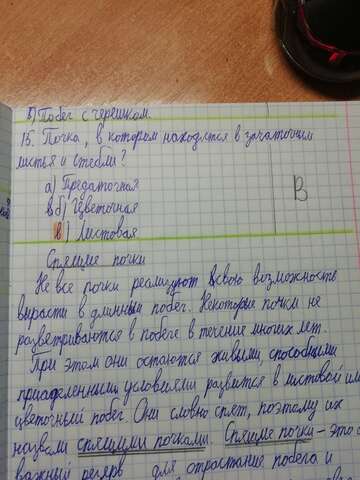 в) Побег с черешком.
15. Почка, в котором находятся в зачаточным
листья и стебли?
а) Придаточная
б) Цветочная
в) Листовая
В
Спящие почки
Не все почки реализуют свою возможность
вырасти в длинный побег. Некоторые почки не
развётриваются в побеге в течение многих лет.
При этом они остаются живыми, способными
при условиями развится в листовой или
цветочный побег. Они словно спят, поэтому их
назвали спящими почками. Спящие почки - это
важный резерв для отрастание побега и